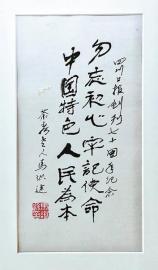 四川日报创刊七十周年纪念
勿忘初心牢记使命
中国特色人民為本
茶寿老人马识途